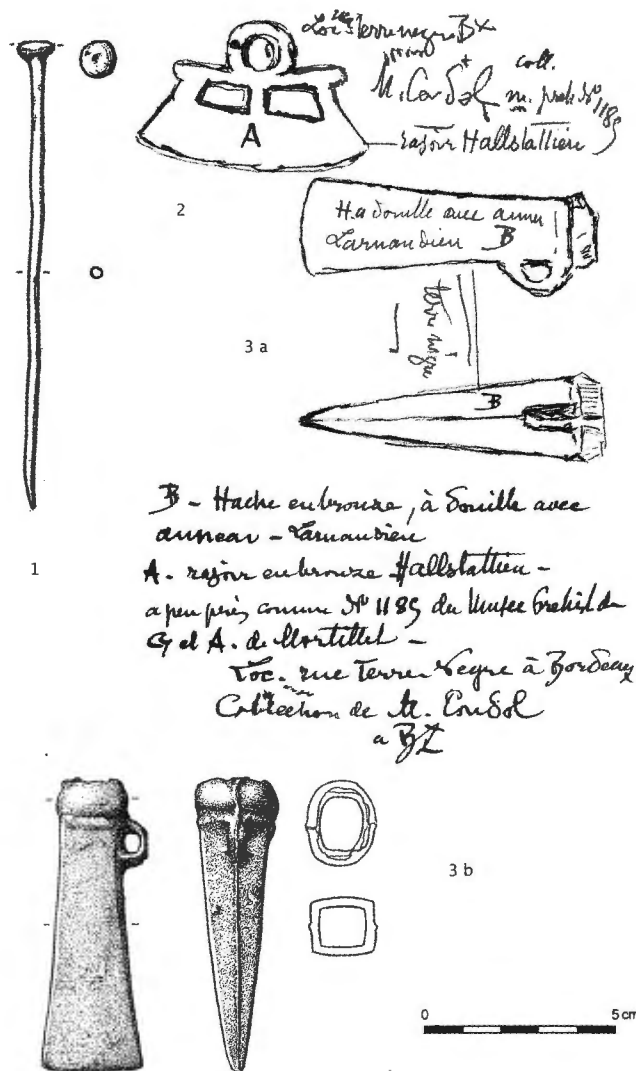 Loc rue Terre negre Bx
coll.
M. Condol m. preh. N° 1189
A
rasoir Hallstattien
2
H. a douille avec anneau
Larnaudien B
terre nègre
3 a
B
B - Hache en bronze, à douille avec
anneau - Larnaudien
1
A. rasoir en bronze Hallstattien -
a peu près comme N° 1189 du Musée Préhist. de
G et A. de Mortillet -
Loc. rue Terre Negre à Bordeaux
Collection de M. Condol
a Bx
3 b
0 5 cm